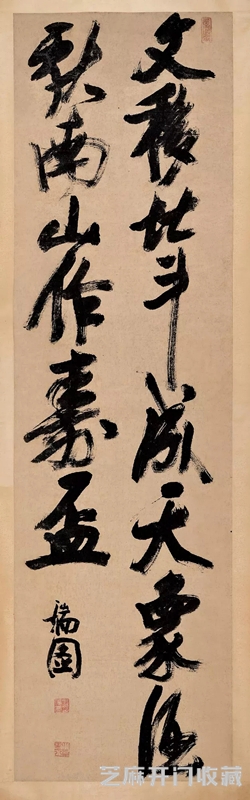 文移北斗成天象酒
献南山作壽盃
瑞圖
芝麻开门收藏